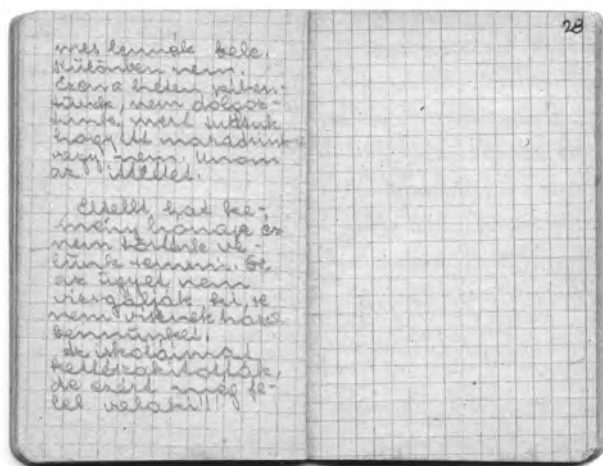 28
mes lennék bele.
Különben nem.
Ezen a héten pihen-
tünk, nem dolgoz-
tunk, mert tudtuk
hogy itt maradunk
vagy nem. Unom
az ittlétet.
Eltellt hat ke-
mény hónapja és
nem történt ve-
lünk semmi. Se
az ügyet nem
vizsgálják ki, se
nem visznek haza
bennünket.
Az iskoláimat
kettészakították,
de ezért még fe-
lel valaki!!